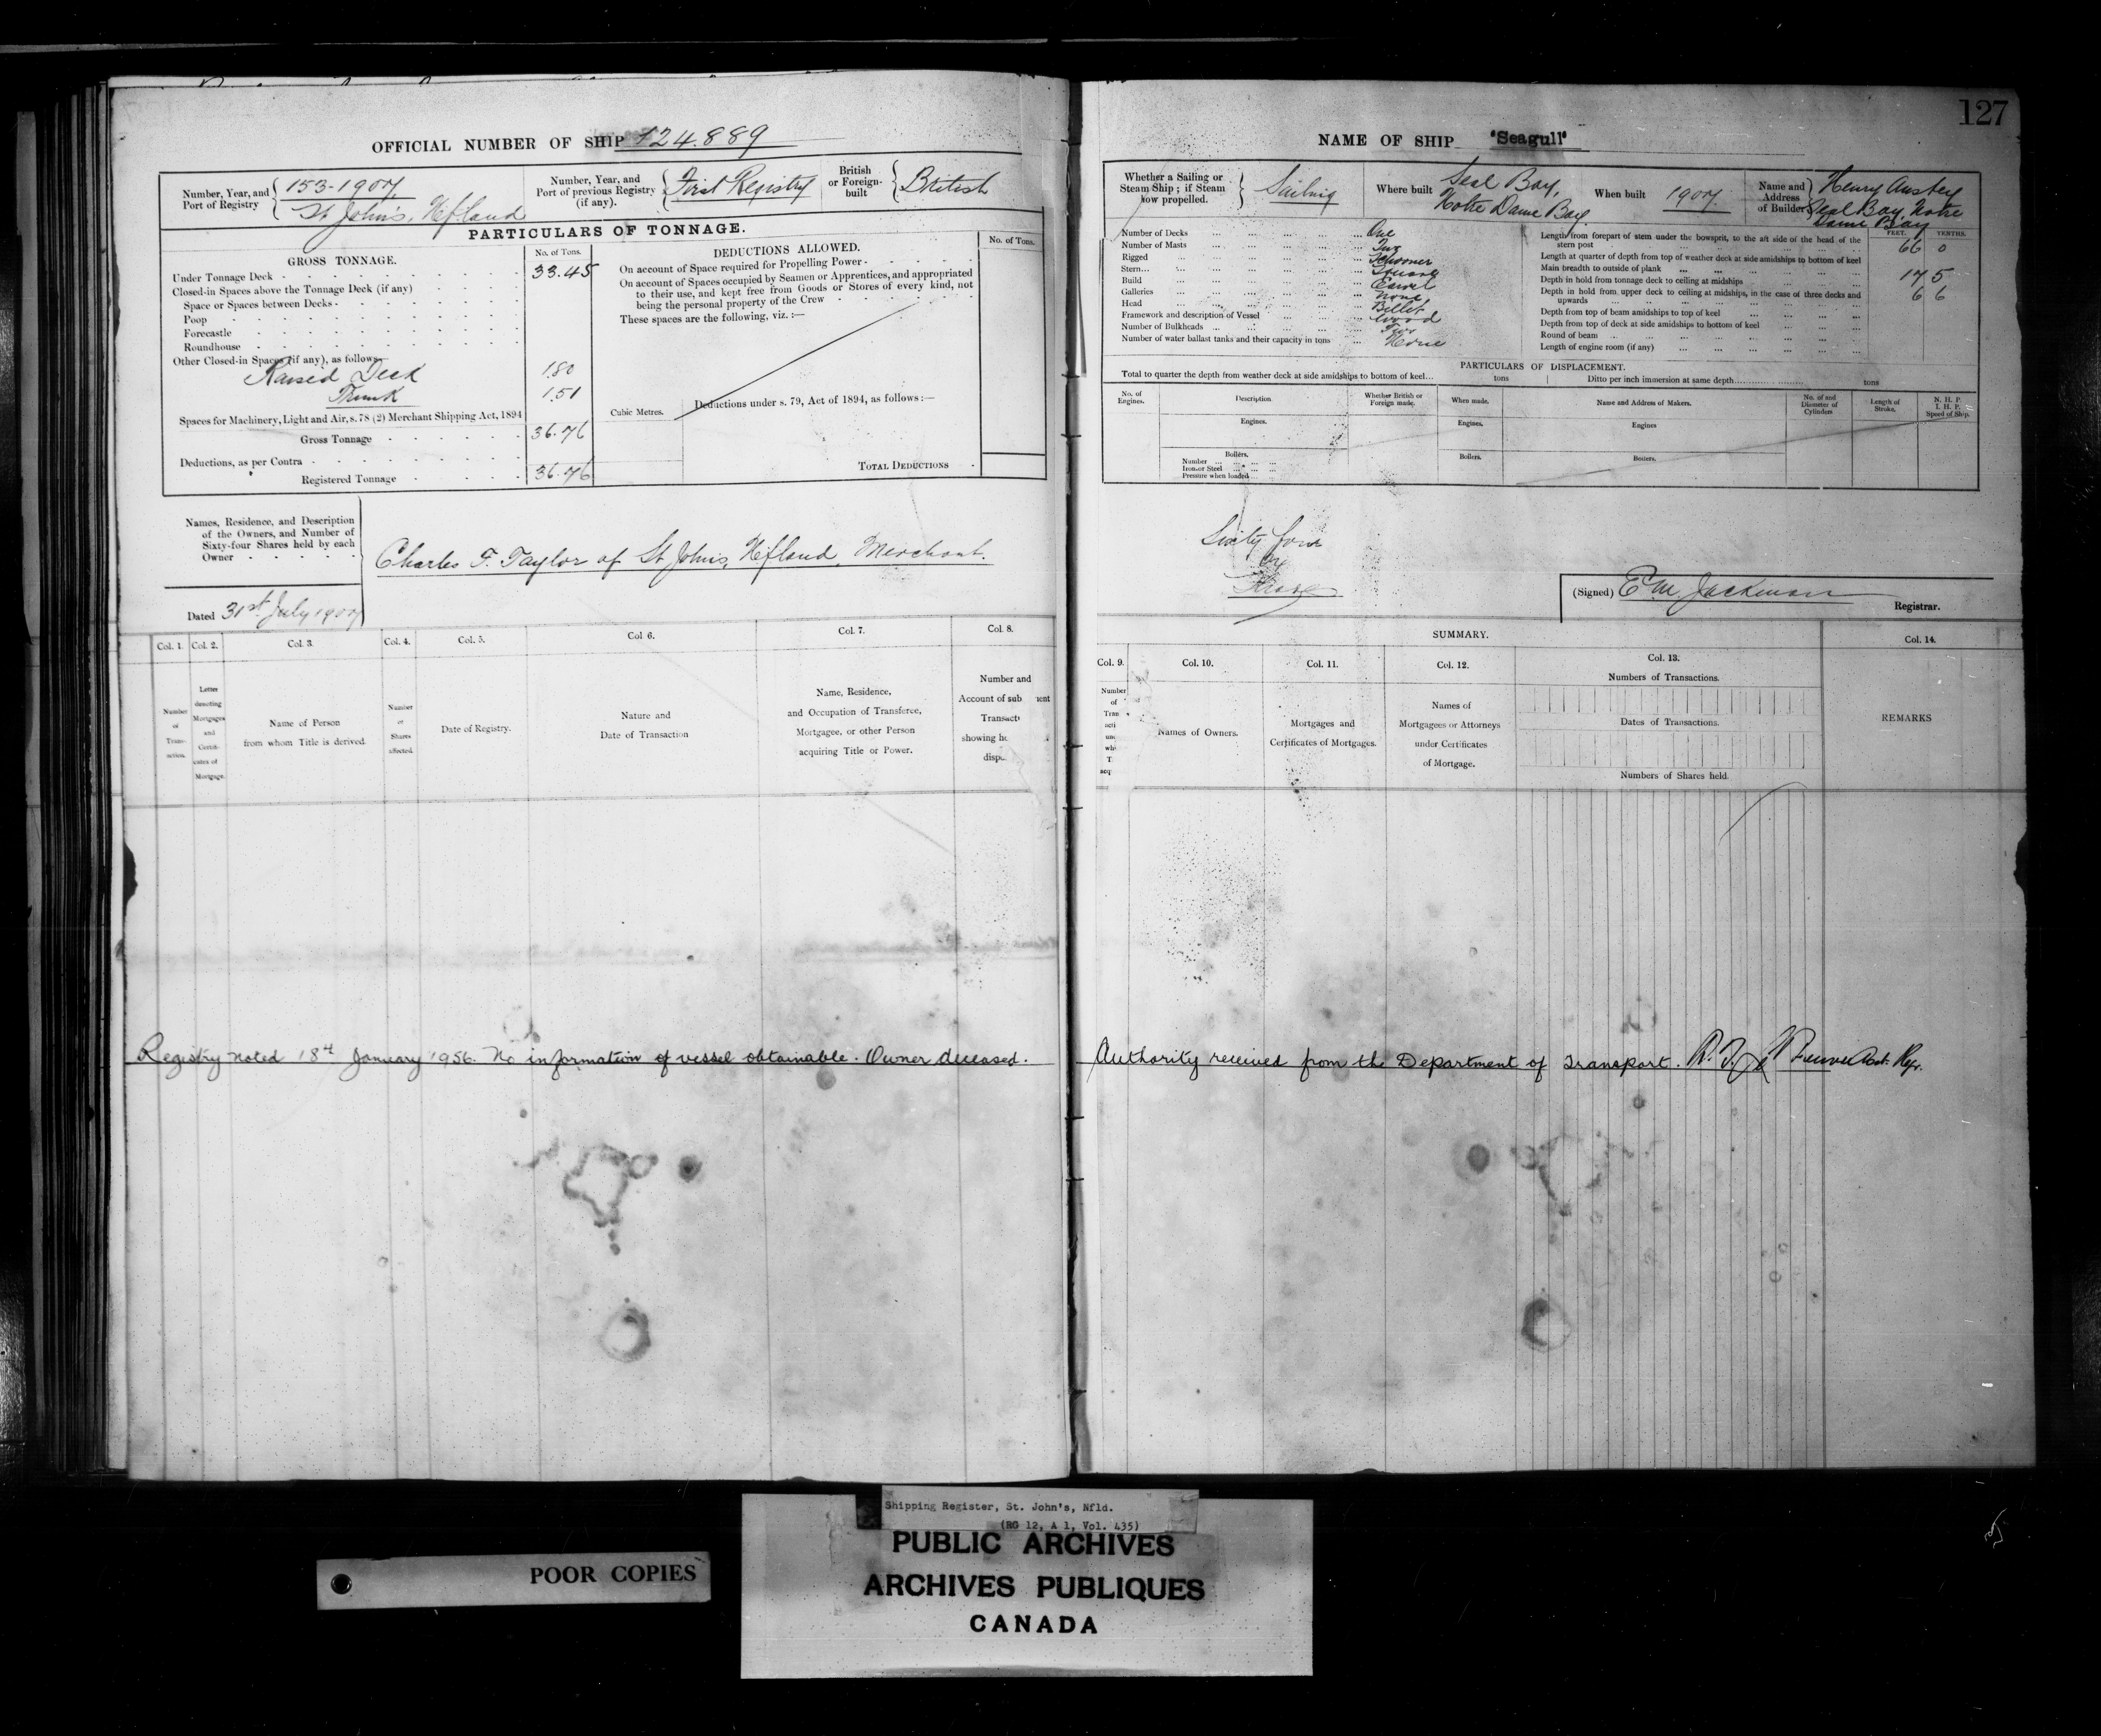 127
OFFICIAL NUMBER OF SHIP 124.889
Number, Year, and Port of Registry
153-1907
St John's, Nfland
Number, Year, and Port of previous Registry (if any).
First Registry
British or Foreign-built
British
PARTICULARS OF TONNAGE.
GROSS TONNAGE.
No. of Tons.
Under Tonnage Deck 33.45
Closed-in Spaces above the Tonnage Deck (if any)
Space or Spaces between Decks
Poop
Forecastle
Roundhouse
Other Closed-in Spaces (if any), as follows
Raised Deck 1.80
Trunk 1.51
Spaces for Machinery, Light and Air, s. 78 (2) Merchant Shipping Act, 1894
Gross Tonnage 36.76
Deductions, as per Contra
Registered Tonnage 36.76
DEDUCTIONS ALLOWED.
No. of Tons.
On account of Space required for Propelling Power
On account of Spaces occupied by Seamen or Apprentices, and appropriated
to their use, and kept free from Goods or Stores of every kind, not
being the personal property of the Crew
These spaces are the following, viz. :—
Cubic Metres.
Deductions under s. 79, Act of 1894, as follows :—
TOTAL DEDUCTIONS
Names, Residence, and Description
of the Owners, and Number of
Sixty-four Shares held by each
Owner
Charles F. Taylor of St Johns, Nfland, Merchant.
Dated 31st July 1907
Col. 1. Col. 2. Col. 3. Col. 4. Col. 5. Col. 6. Col. 7. Col. 8.
Number of Transaction.
Letter denoting Mortgages and Certificates of Mortgage.
Name of Person
from whom Title is derived.
Number of Shares affected.
Date of Registry.
Nature and
Date of Transaction
Name, Residence,
and Occupation of Transferee,
Mortgagee, or other Person
acquiring Title or Power.
Number and
Account of sub ent
Transact
showing ho
disp
Registry noted 18th January 1956. No information of vessel obtainable. Owner deceased.
NAME OF SHIP "Seagull"
Whether a Sailing or
Steam Ship ; if Steam
how propelled.
Sailing
Where built
Seal Bay,
Notre Dame Bay
When built 1907
Name and
Address
of Builder
Henry Anstey
Seal Bay, Notre
Dame Bay
Number of Decks One
Number of Masts Two
Rigged Schooner
Stern Square
Build Carvel
Galleries None
Head Billet
Framework and description of Vessel Wood
Number of Bulkheads Two
Number of water ballast tanks and their capacity in tons None
FEET. TENTHS.
Length from forepart of stem under the bowsprit, to the aft side of the head of the
stern post 66 0
Length at quarter of depth from top of weather deck at side amidships to bottom of keel
Main breadth to outside of plank 17 5
Depth in hold from tonnage deck to ceiling at midships 6 6
Depth in hold from upper deck to ceiling at midships, in the case of three decks and
upwards
Depth from top of beam amidships to top of keel
Depth from top of deck at side amidships to bottom of keel
Round of beam
Length of engine room (if any)
PARTICULARS OF DISPLACEMENT.
Total to quarter the depth from weather deck at side amidships to bottom of keel... tons
Ditto per inch immersion at same depth tons
No. of Engines.
Description
Whether British or Foreign made.
When made.
Name and Address of Makers.
No. of and Diameter of Cylinders
Length of Stroke.
N. H. P.
I. H. P.
Speed of Ship.
Engines. Engines. Engines
Boilers. Boilers. Boilers.
Number
Iron or Steel
Pressure when loaded
Sixty four
(Signed) E M Jackman
Registrar.
SUMMARY.
Col. 9. Col. 10. Col. 11. Col. 12. Col. 13. Col. 14.
Number
of
Tran
acti
whi
T
acq
Names of Owners.
Mortgages and
Certificates of Mortgages.
Names of
Mortgagees or Attorneys
under Certificates
of Mortgage.
Numbers of Transactions.
Dates of Transactions.
Numbers of Shares held.
REMARKS
Authority received from the Department of Transport.
POOR COPIES
Shipping Register, St. John's, Nfld.
(RG 12, A 1, Vol. 435)
PUBLIC ARCHIVES
ARCHIVES PUBLIQUES
CANADA